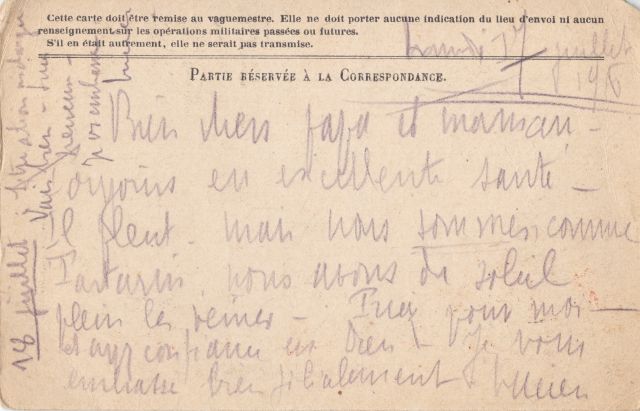 Cette carte doit être remise au vaguemestre. Elle ne doit porter aucune indication du lieu d'envoi ni aucun
renseignement sur les opérations militaires passées ou futures.
S'il en était autrement, elle ne serait pas transmise.
Lundi 17 juillet
1916
PARTIE RÉSERVÉE À LA CORRESPONDANCE.
Bien chers papa et maman,
toujours en excellente santé –
Il pleut. mais nous sommes comme
Tartarin, nous avons du soleil
plein les veines – Priez pour moi –
et ayez confiance en Dieu – Je vous
embrasse bien filialement Lucien
18 juillet
Vais bien